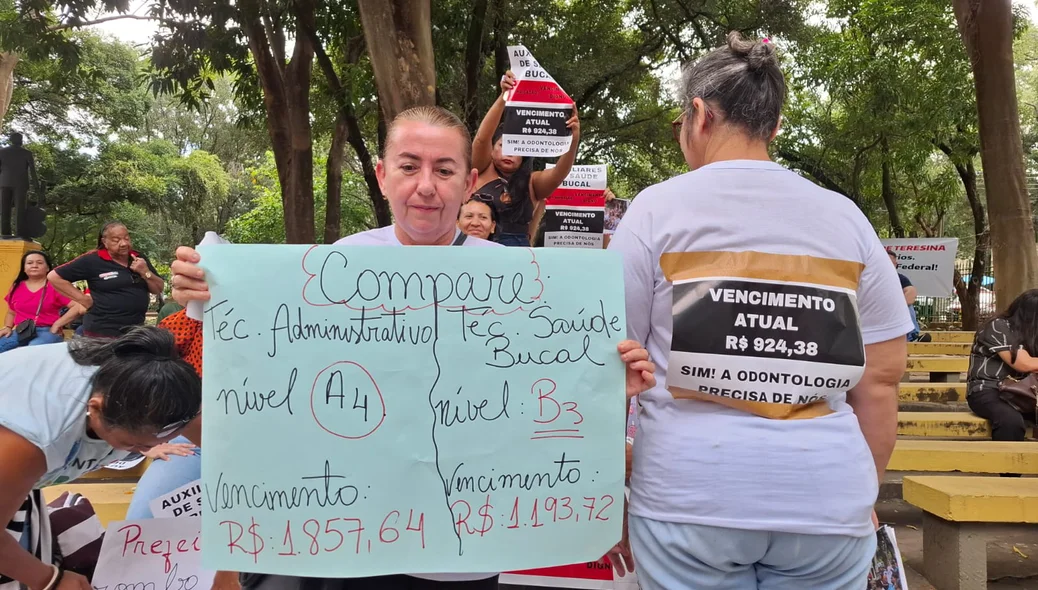 AUX
DE S
BUCAL
VENCIMENTO
ATUAL
R$ 924,38
SIM! A ODONTOLOGIA
PRECISA DE NÓS
ILIARES
SAÚDE
BUCAL
VENCIMENTO
ATUAL
R$ 924,38
SIM! A ODONTOLOGIA
E TERESINA
rios.
Federal!
Compare:
Téc. Administrativo
nível A4
Vencimento:
R$:1.857,64
Téc. Saúde
Bucal
nível: B3
Vencimento:
R$:1.193,72
VENCIMENTO
ATUAL
R$ 924,38
SIM! A ODONTOLOGIA
PRECISA DE NÓS
AUXIL
DE S
Prefei